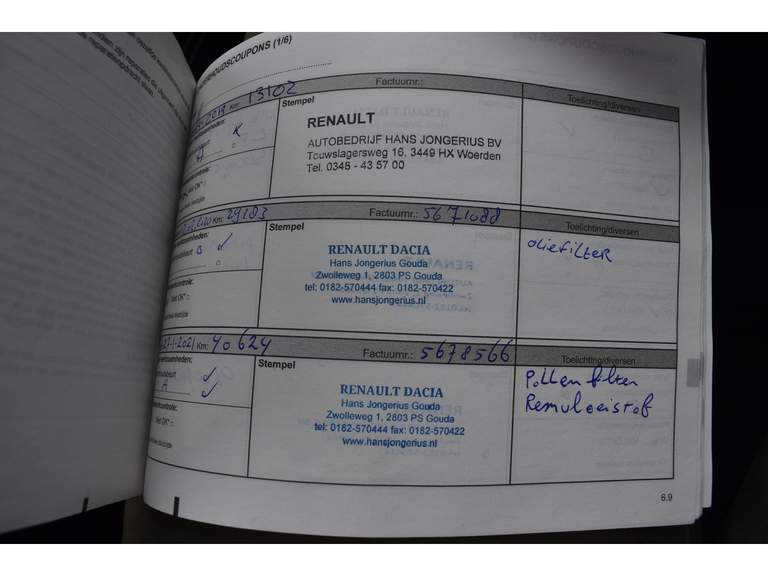 HOUDSCOUPONS (1/6)
2019 Km: 13102
Factuurnr.:
Stempel
Toelichting/diversen
RENAULT
AUTOBEDRIJF HANS JONGERIUS BV
Touwslagersweg 16, 3449 HX Woerden
Tel. 0348 - 43 57 00
2020 Km: 29183
Factuurnr.: 5671088
Stempel
Toelichting/diversen
oliefilter
RENAULT DACIA
Hans Jongerius Gouda
Zwolleweg 1, 2803 PS Gouda
tel: 0182-570444 fax: 0182-570422
www.hansjongerius.nl
-1-2021 Km: 40624
Factuurnr.: 5678566
Stempel
Toelichting/diversen
Pollenfilter
Remvloeistof
RENAULT DACIA
Hans Jongerius Gouda
Zwolleweg 1, 2803 PS Gouda
tel: 0182-570444 fax: 0182-570422
www.hansjongerius.nl
6.9